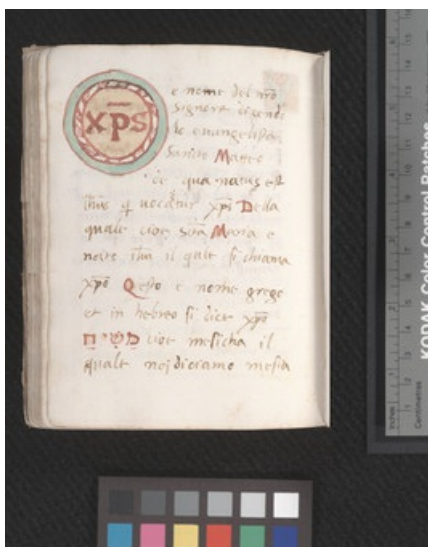 XP̅S
e nome del nr̃o
Signore dicendo
lo euangelista
Sancto Matteo
de qua natus est
ih̅us q̅ uocatur xp̅s Della
quale cioe sc̃a Maria e
nato ih̅u il qale si chiama
xp̅o Qesto e nome grego
et in hebreo si dice xp̅o
מָשִׁיחַ cioe mesicha il
quale noi diciamo mesia
KODAK Color Control Patches
Inches
Centimetres